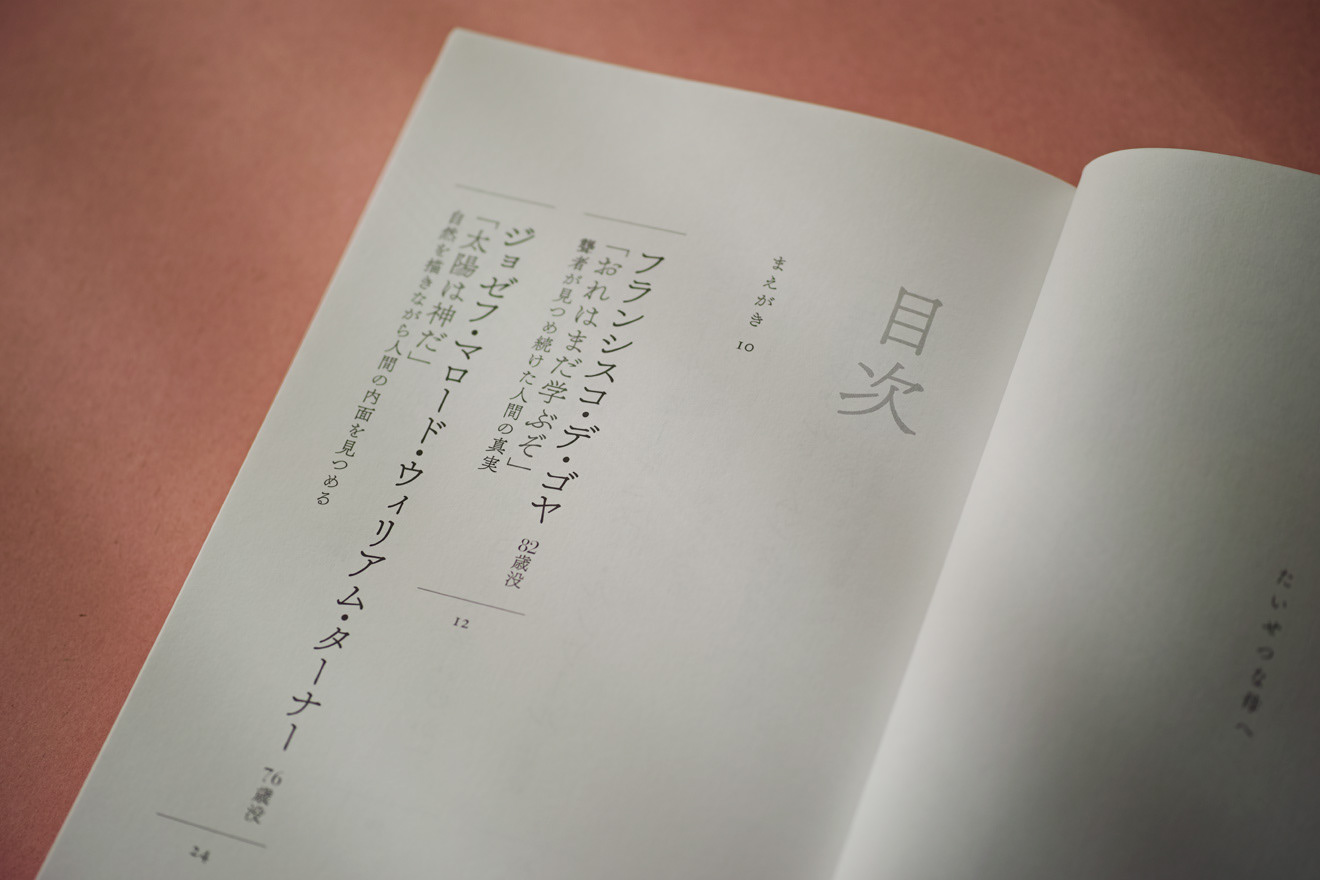 たいせつな存へ
目次
まえがき 10
フランシスコ・デ・ゴヤ 82歳没
「おれはまだ学ぶぞ」
聾者が見つめ続けた人間の真実
12
ジョゼフ・マロード・ウィリアム・ターナー 76歳没
「太陽は神だ」
自然を描きながら人間の内面を見つめる
24